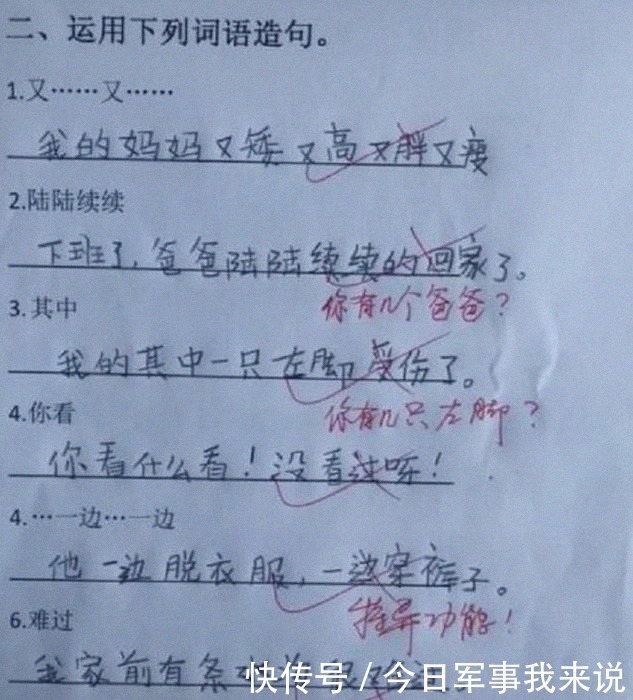 二、运用下列词语造句。
1.又……又……
我的妈妈又矮又高又胖又瘦
2.陆陆续续
下班了，爸爸陆陆续续的回家了。
你有几个爸爸？
3.其中
我的其中一只左脚受伤了。
你有几只左脚？
4.你看
你看什么看！没看过呀！
4.…一边…一边
他一边脱衣服，一边穿裤子。
特异功能！
6.难过
我家前有条
快传号/今日军事我来说